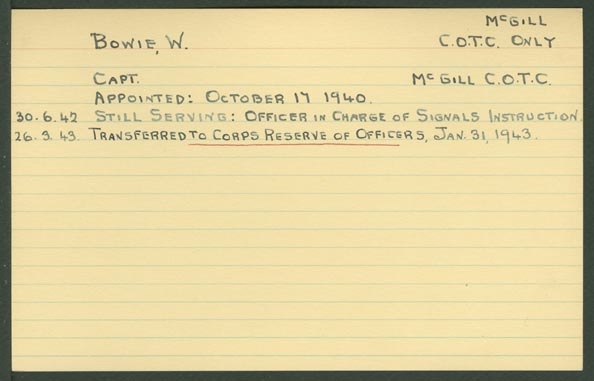 McGILL
BOWIE, W. C.O.T.C. ONLY
CAPT. McGILL C.O.T.C.
APPOINTED: OCTOBER 17 1940.
30.6.42 STILL SERVING: OFFICER IN CHARGE OF SIGNALS INSTRUCTION.
26.3.43. TRANSFERRED TO CORPS RESERVE OF OFFICERS, JAN. 31, 1943.